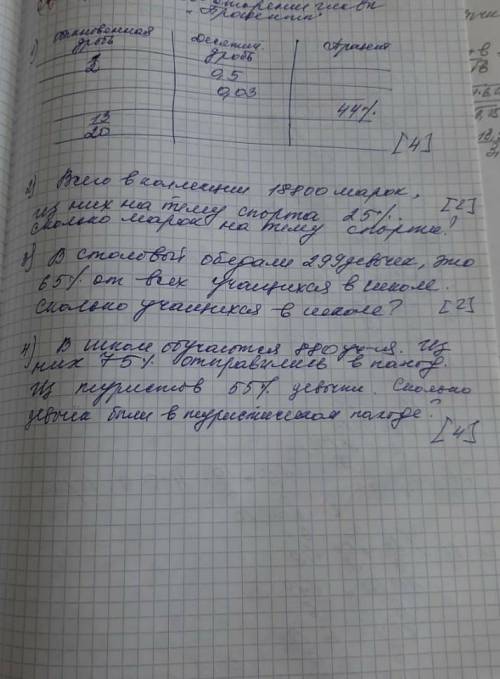 "Проценты"
1) Обыкновенная дробь Десятич. дробь Процент
1/2 0,5
0,03
44%
13/20
[4]
2) Всего в коллекции 18800 марок,
из них на тему спорта 25%. [2]
Сколько марок на тему спорта?
3) В столовый обедали 299 девочек, это
65% от всех учащихся в школе.
Сколько учащихся в школе? [2]
4) В школе обучаются 880 уч-ся. Из
них 75% отправились в поход.
Из туристов 55% девочки. Сколько
девочек были в туристическом походе?
[4]